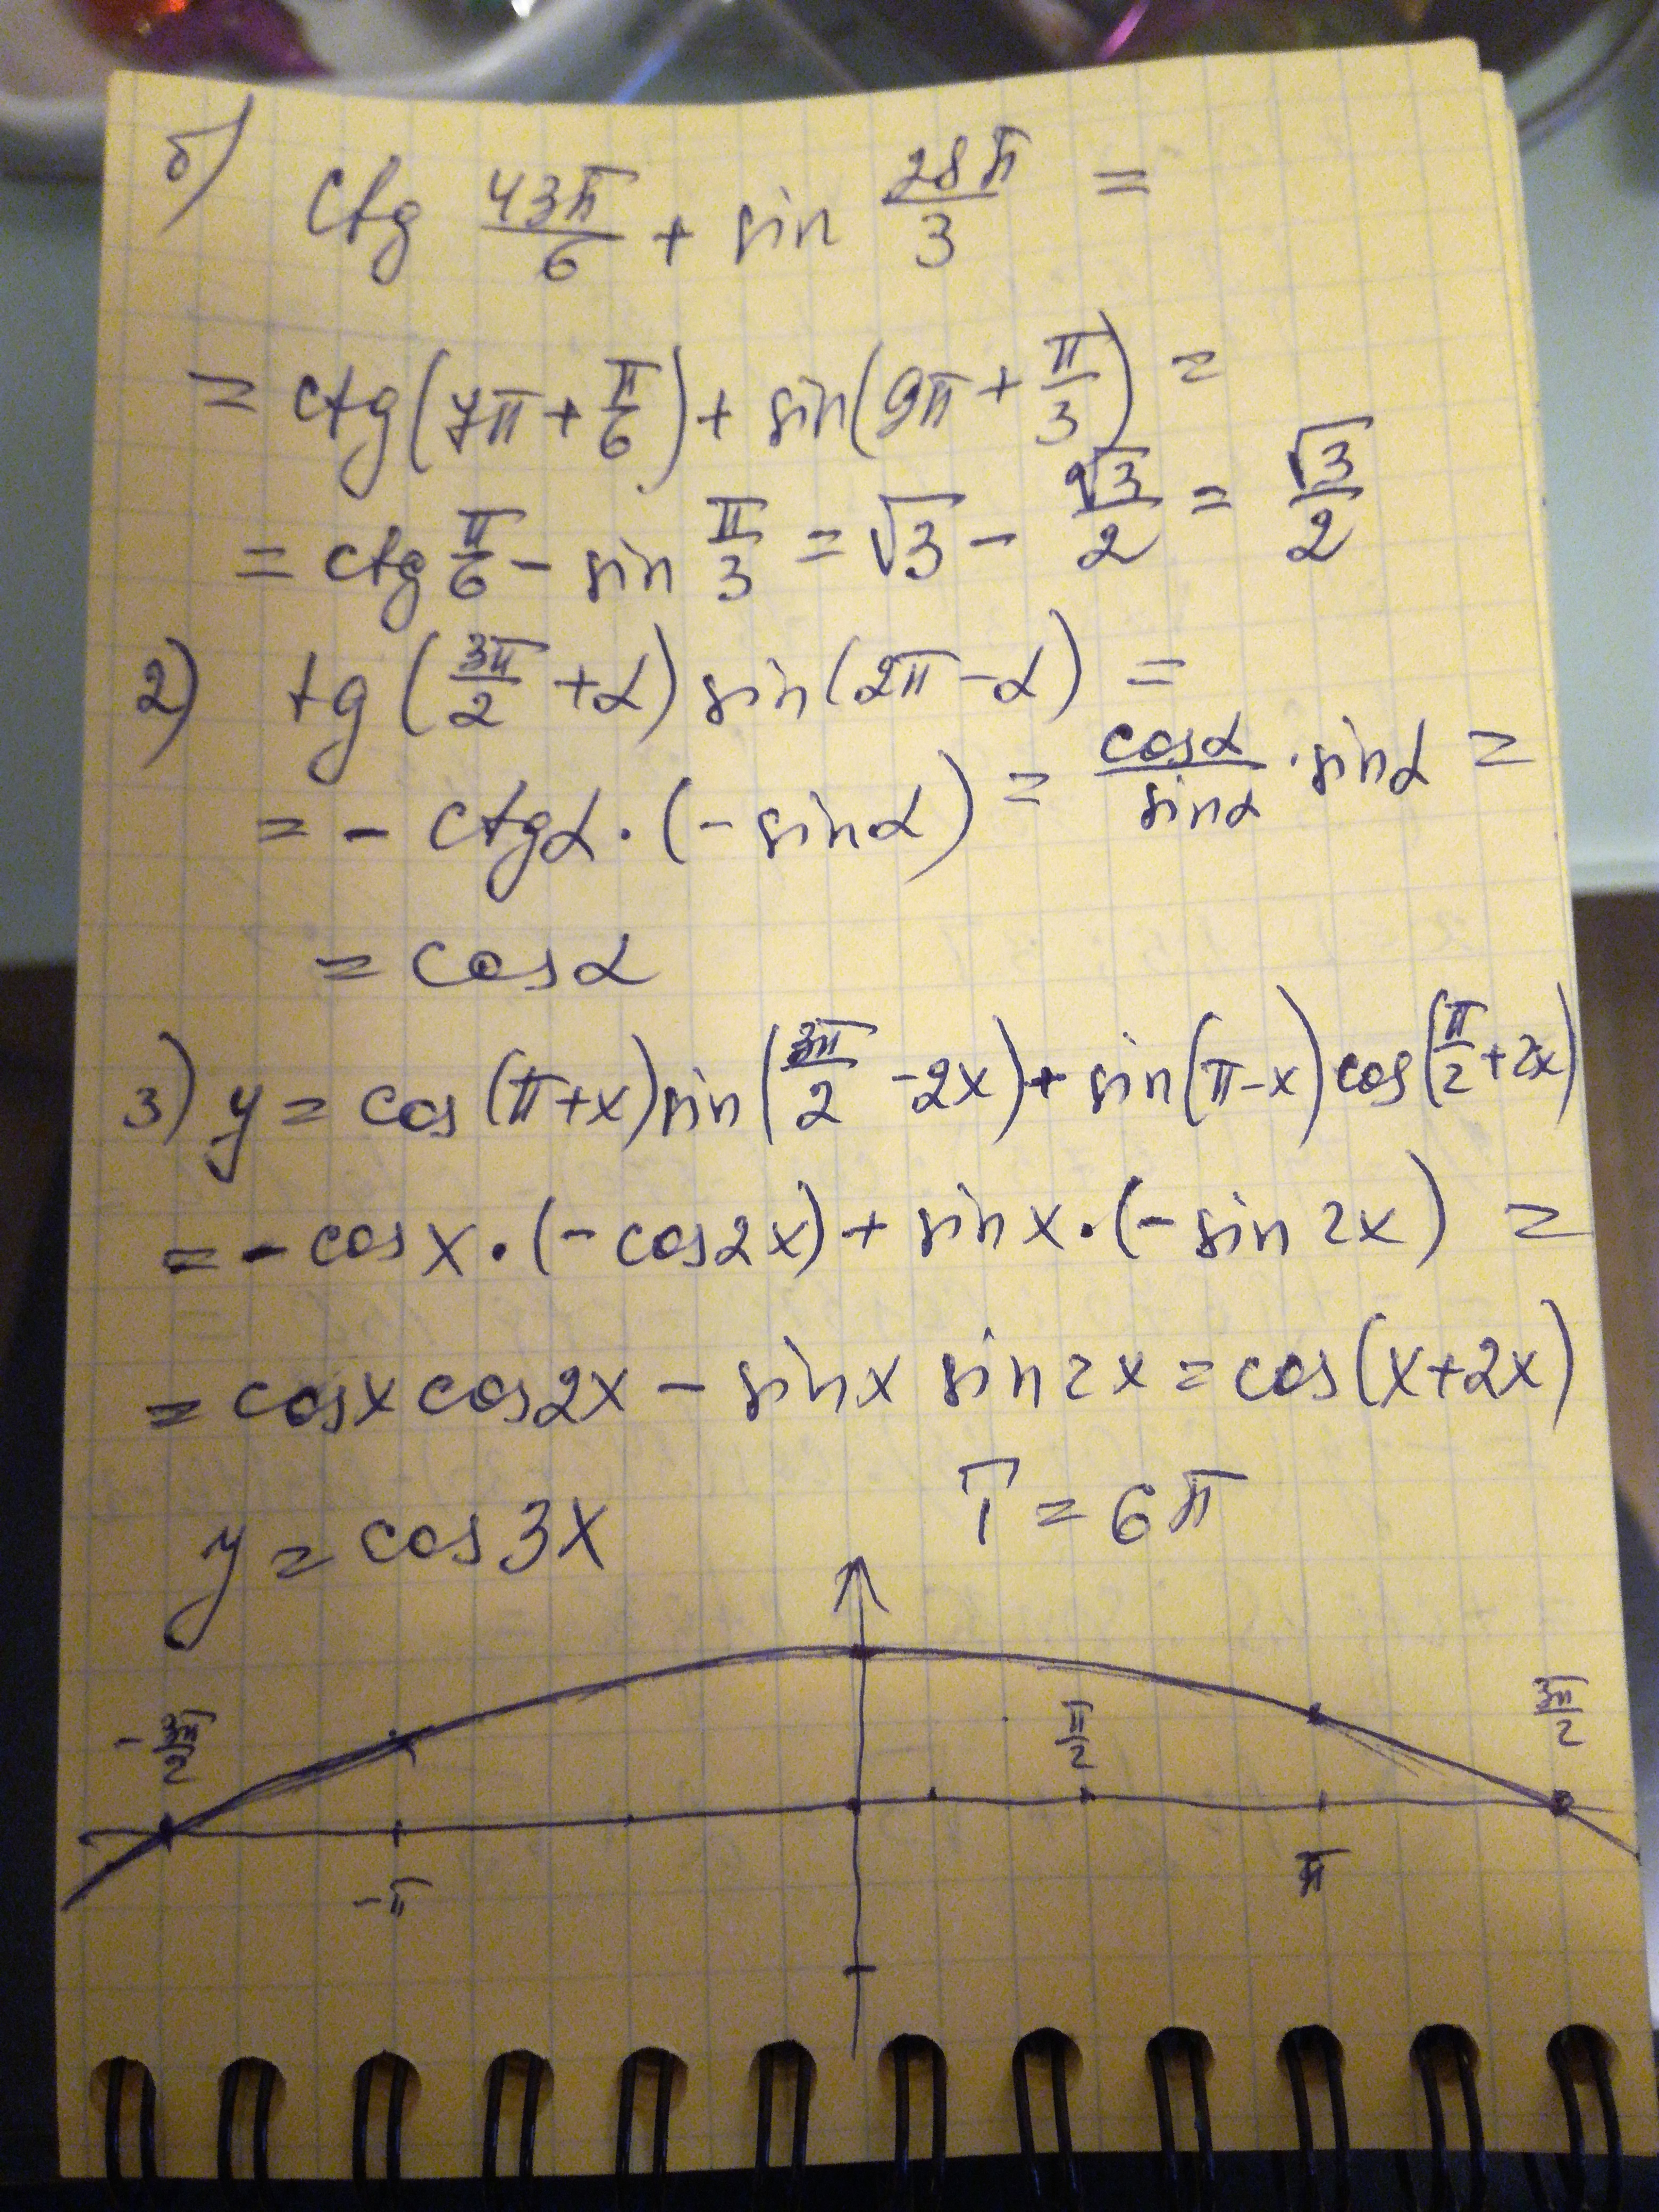 б) ctg 43π/6 + sin 28π/3 =
= ctg(7π + π/6) + sin(9π + π/3) =
= ctg π/6 - sin π/3 = √3 - √3/2 = √3/2
2) tg(3π/2 + α) sin(2π - α) =
= - ctgα · (- sinα) = cosα/sinα · sinα =
= cosα
3) y = cos(π+x) sin(3π/2 - 2x) + sin(π-x) cos(π/2 + 2x)
= - cosx · (- cos2x) + sinx · (- sin2x) =
= cosx cos2x - sinx sin2x = cos(x+2x)
y = cos3x T = 6π
-3π/2 π/2 3π/2
-π π